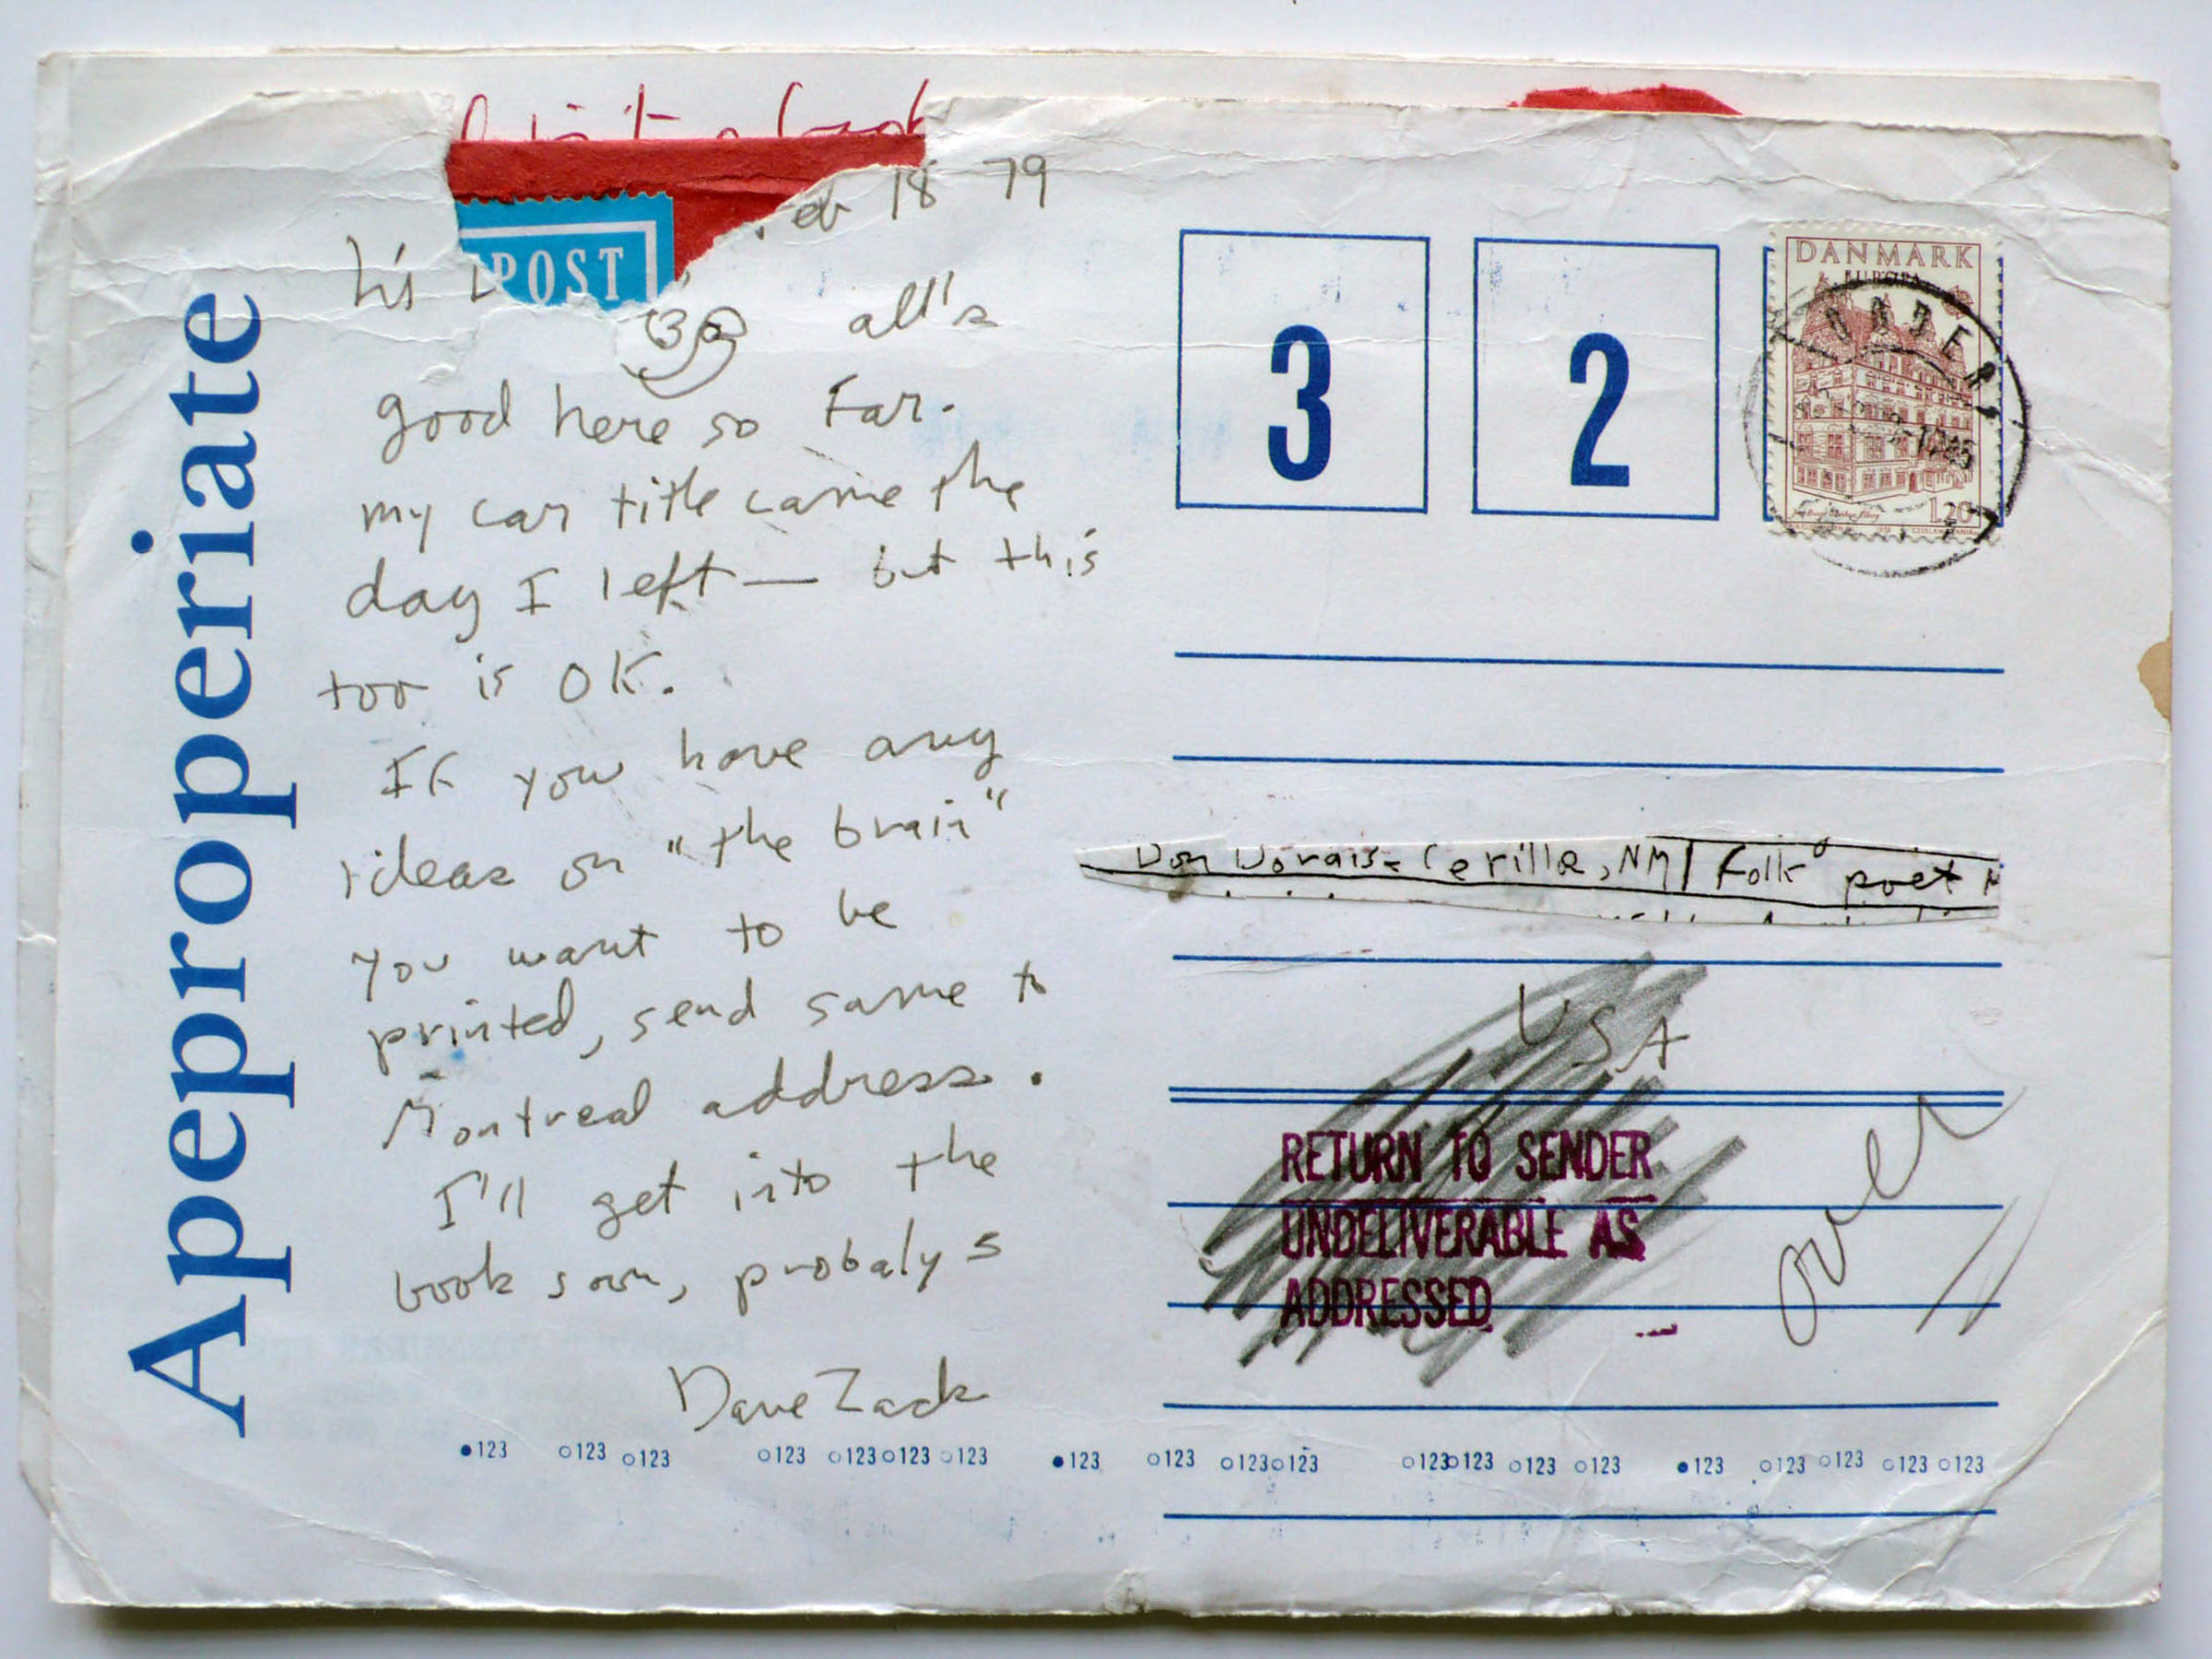 Apeproperiate
18 79
POST
his
all's
good here so far.
my car title came the
day I left — but this
too is OK.
If you have any
ideas on "the brain"
you want to be
printed, send same to
Montreal address.
I'll get into the
book soon, probaly s
Dave Zack
3 2
DANMARK
EUROPA
1.20
Cerillo, NM folk poet
USA
RETURN TO SENDER
UNDELIVERABLE AS
ADDRESSED
over
123 123 123 123 123 123 123 123 123 123 123 123 123 123 123 123 123 123 123 123